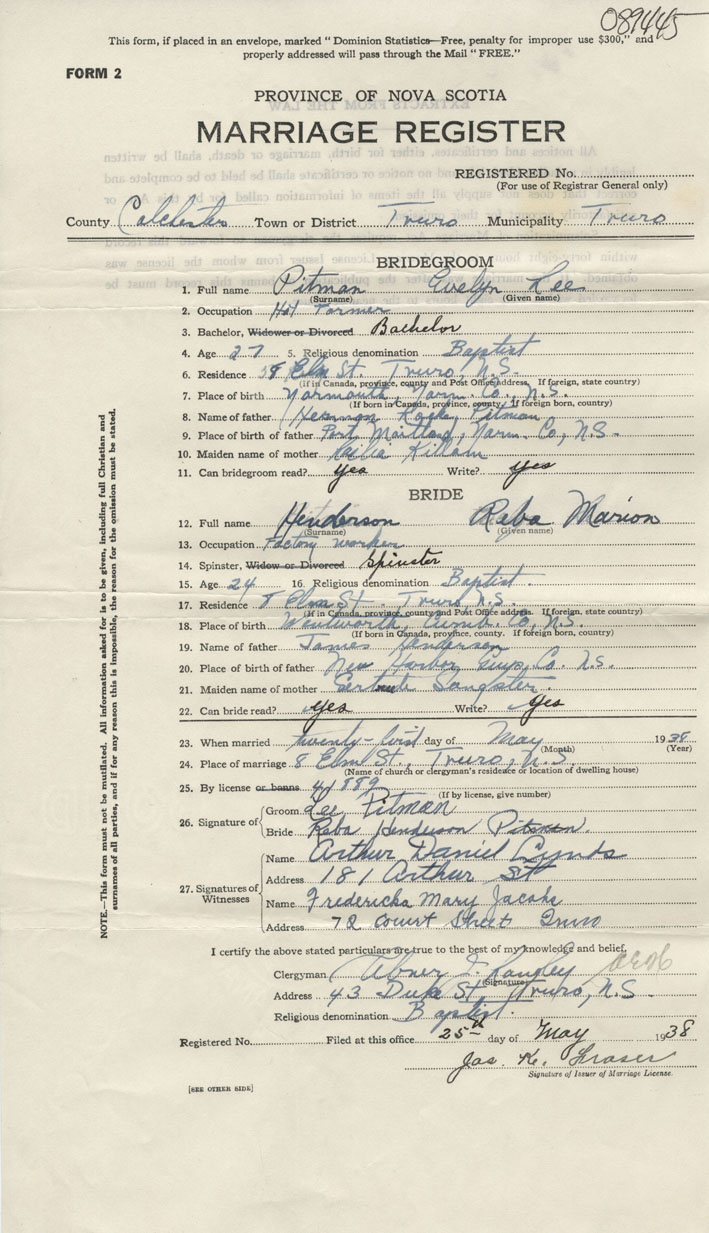 089445
This form, if placed in an envelope, marked "Dominion Statistics—Free, penalty for improper use $300," and
properly addressed will pass through the Mail "FREE."
FORM 2
PROVINCE OF NOVA SCOTIA
MARRIAGE REGISTER
REGISTERED No.
(For use of Registrar General only)
County Colchester Town or District Truro Municipality Truro
BRIDEGROOM
1. Full name Pitman Evelyn Lee
(Surname) (Given name)
2. Occupation Hat Former
3. Bachelor, Widower or Divorced Bachelor
4. Age 27 5. Religious denomination Baptist
6. Residence 8 Elm St. Truro, N.S.
(if in Canada, province, county and Post Office address. If foreign, state country)
7. Place of birth Yarmouth, Yarm. Co., N.S.
(If born in Canada, province, county. If foreign born, country)
8. Name of father Herman Pitman
9. Place of birth of father Port Maitland, Yarm. Co., N.S.
10. Maiden name of mother Killam
11. Can bridegroom read? yes Write? yes
BRIDE
12. Full name Henderson Reba Marion
(Surname) (Given name)
13. Occupation Factory worker
14. Spinster, Widow or Divorced Spinster
15. Age 24 16. Religious denomination Baptist.
17. Residence 8 Elm St. Truro, N.S.
(If in Canada, province, county and Post Office address. If foreign, state country)
18. Place of birth Wentworth, Cumb. Co., N.S.
(If born in Canada, province, county. If foreign born, country)
19. Name of father James Henderson
20. Place of birth of father New Harbor Guys. Co. N.S.
21. Maiden name of mother Gertrude Sangster.
22. Can bride read? yes Write? yes
23. When married twenty-first day of May 1938
(Month) (Year)
24. Place of marriage 8 Elm St., Truro, N.S.
(Name of church or clergyman's residence or location of dwelling house)
25. By license or banns 41889
(If by license, give number)
26. Signature of Groom Lee Pitman
Bride Reba Henderson Pitman.
27. Signatures of Witnesses
Name Arthur Daniel Lynds
Address 181 Arthur St
Name Fredericka Mary Jacobs
Address 72 Court Street Truro
I certify the above stated particulars are true to the best of my knowledge and belief.
Clergyman Abner F. Langley
(Signature)
Address 43 Duke St, Truro, N.S.
Religious denomination Baptist.
Registered No. Filed at this office 25th day of May 1938
Jas. K. Fraser
Signature of Issuer of Marriage License.
[SEE OTHER SIDE]
NOTE.—This form must not be mutilated. All information asked for is to be given, including full Christian and
surnames of all parties, and if for any reason this is impossible, the reason for the omission must be stated.